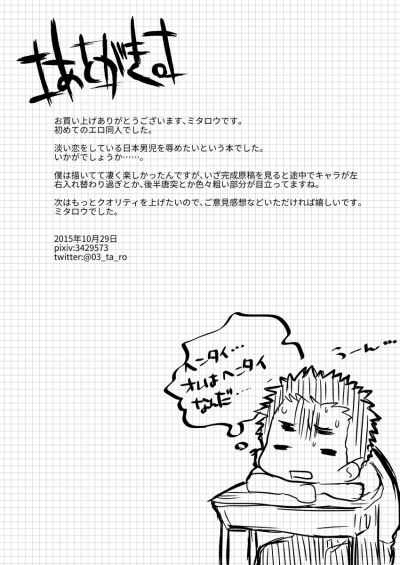 あとがき
お買い上げありがとうございます、ミタロウです。
初めてのエロ同人でした。
淡い恋をしている日本男児を辱めたいという本でした。
いかがでしょうか……。
僕は描いてて凄く楽しかったんですが、いざ完成原稿を見ると途中でキャラが左
右入れ替わり過ぎとか、後半唐突とか色々粗い部分が目立ってますね。
次はもっとクオリティを上げたいので、ご意見感想などいただければ嬉しいです。
ミタロウでした。
2015年10月29日
pixiv:3429573
twitter:@03_ta_ro
うーん…
ヘンタイ…
オレはヘンタイ
なんだ…